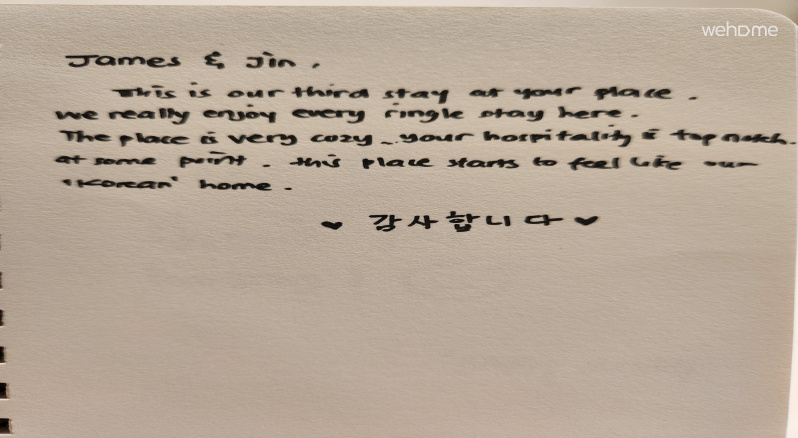 wehome
James & Jin,
This is our third stay at your place.
we really enjoy every single stay here.
The place is very cozy ~ your hospitality is top notch.
at some point. this place starts to feel like our
'Korean' home.
♥ 감사합니다 ♥